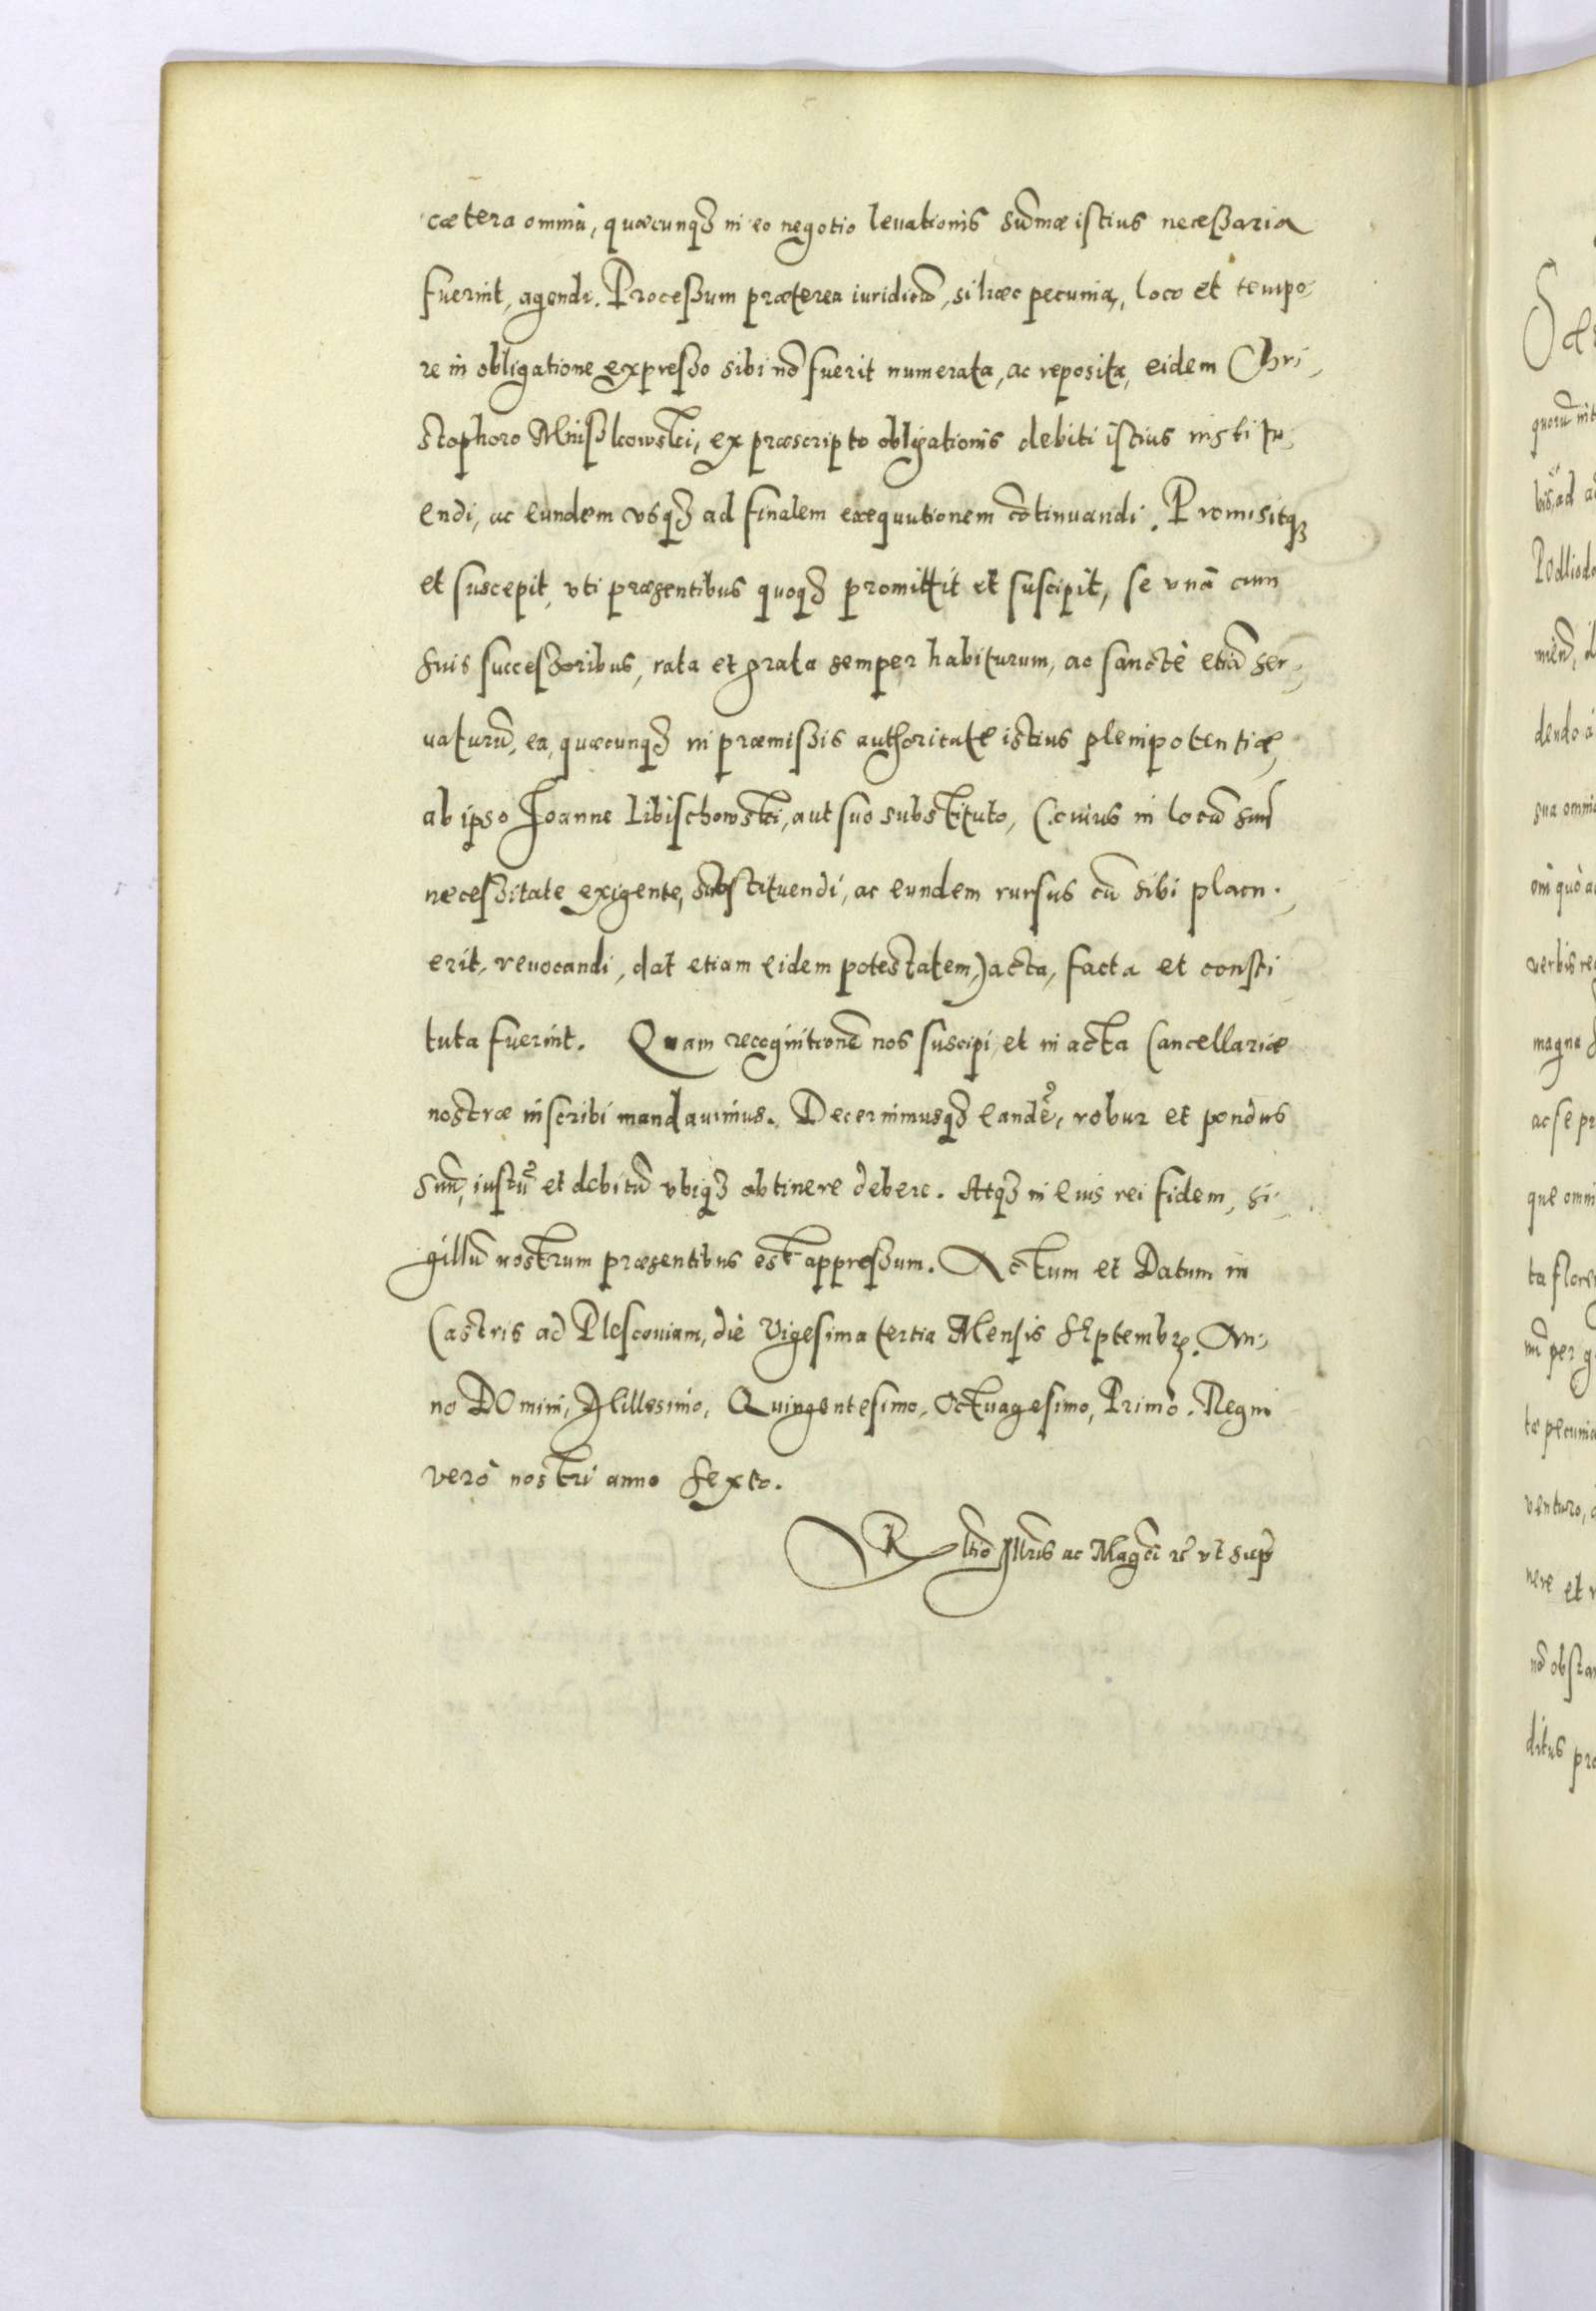 cætera omnia, quæcunqʒ in eo negotio leuationis sum̃æ istius necessaria
fuerint, agendi. Processum præterea iuridicũ, si hæc pecunia, loco et tempo-
re in obligatione expresso sibi nõ fuerit numerata, ac reposita, eidem Chri-
stophoro, ex præscripto obligationis debiti istius institu-
endi, ac eundem vsqʒ ad finalem exequutionem cõtinuandi. Promisitqʒ
et suscepit, vti præsentibus quoqʒ promittit et suscipit, se vnã cum
suis successoribus, rata et grata semper habiturum, ac sanctè etiã ser-
uaturũ, ea, quæcunqʒ in præmissis authoritate istius plenipotentiæ,
ab ipso Joanne Libischowski, aut suo substituto, (cuius in locũ suũ
necessitate exigente, substituendi, ac eundem rursus cũ sibi placu-
erit, reuocandi, dat etiam eidem potestatem,) acta, facta et consti
tuta fuerint. Quam recognitionẽ nos suscipi, et in acta Cancellariæ
nostræ inscribi mandauimus. Decernimusqʒ eandẽ, robur et pondus
suũ, iustũ et debitũ vbiqʒ obtinere debere. Atqʒ in eius rei fidem, si-
gillũ nostrum præsentibus est appressum. Actum et Datum in
Castris ad Plescouiam, die Vigesima tertia Mensis SEptembr. An-
no DOmini, Millesimo, Quingentesimo, Octuagesimo, Primo. Regni
verò nostri anno Sexto.
Rltio Illris ac Magci rc vt sup
quorũ
bis, ad
dendo
sua omni
om̃ quò
verbis
magna
ac se
que omni
ta
nũ per
tæ pecunia
venturo,
nere et
nõ
ditus